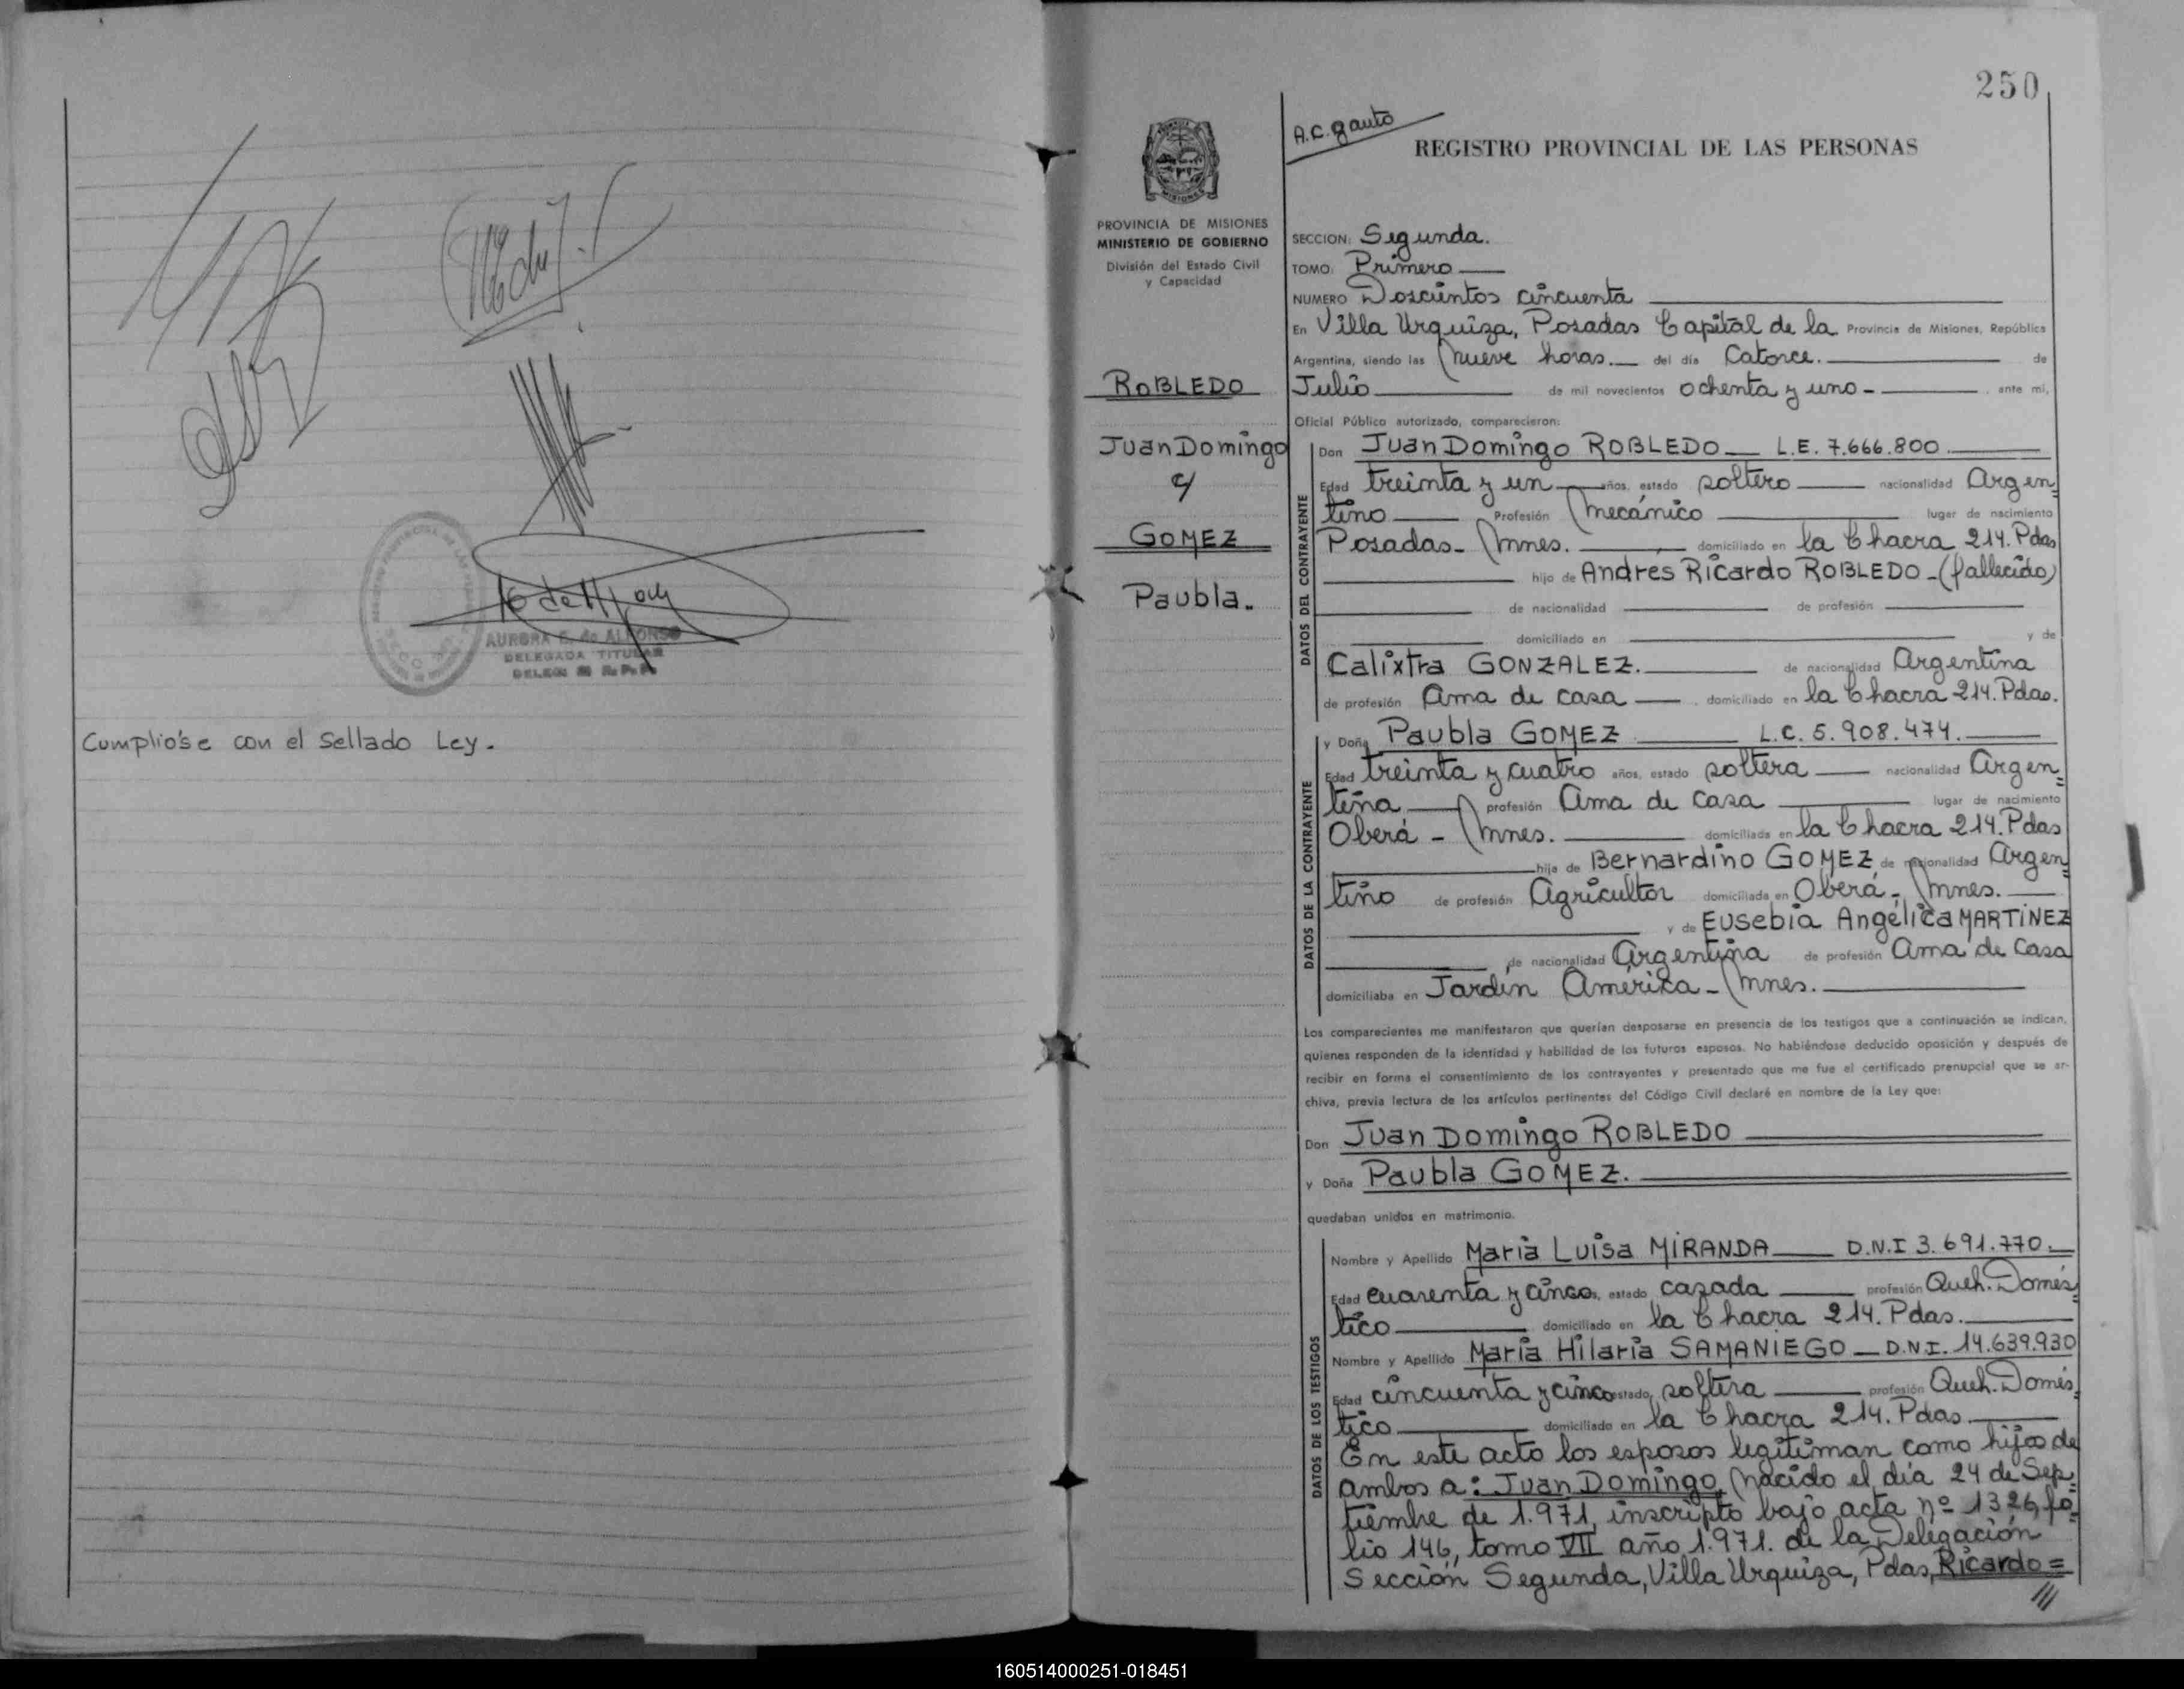 AURORA E. de ALFONSO
DELEGADA TITULAR
Cumplióse con el Sellado Ley.
250
A.C. Gauto
REGISTRO PROVINCIAL DE LAS PERSONAS
MISIONES
PROVINCIA DE MISIONES
MINISTERIO DE GOBIERNO
División del Estado Civil
y Capacidad
ROBLEDO
Juan Domingo
c/
GOMEZ
Paubla.
SECCION: Segunda.
TOMO: Primero
NUMERO Doscientos cincuenta
En Villa Urquiza, Posadas Capital de la Provincia de Misiones, República
Argentina, siendo las nueve horas. del día Catorce. de
Julio de mil novecientos ochenta y uno - , ante mí,
Oficial Público autorizado, comparecieron:
DATOS DEL CONTRAYENTE
Don Juan Domingo ROBLEDO L.E. 7.666.800.
Edad treinta y un años, estado soltero nacionalidad Argen=
tino Profesión mecánico lugar de nacimiento
Posadas- Mnes. domiciliado en la Chacra 214. Pdas
hijo de Andrés Ricardo ROBLEDO - (fallecido)
de nacionalidad de profesión
domiciliado en y de
Calixtra GONZALEZ. de nacionalidad Argentina
de profesión Ama de casa , domiciliado en la Chacra 214. Pdas.
DATOS DE LA CONTRAYENTE
y Doña Paubla GOMEZ L.C. 5.908.474.
Edad treinta y cuatro años, estado soltera nacionalidad Argen=
tina profesión Ama de casa lugar de nacimiento
Oberá - Mnes. domiciliada en la Chacra 214. Pdas
hija de Bernardino GOMEZ de nacionalidad Argen=
tino de profesión Agricultor domiciliada en Oberá - Mnes.
y de Eusebia Angélica MARTINEZ
de nacionalidad Argentina de profesión Ama de Casa
domiciliaba en Jardín América - Mnes.
Los comparecientes me manifestaron que querían desposarse en presencia de los testigos que a continuación se indican,
quienes responden de la identidad y habilidad de los futuros esposos. No habiéndose deducido oposición y después de
recibir en forma el consentimiento de los contrayentes y presentado que me fue el certificado prenupcial que se ar-
chiva, previa lectura de los artículos pertinentes del Código Civil declaré en nombre de la Ley que:
Don Juan Domingo ROBLEDO
y Doña Paubla GOMEZ.
quedaban unidos en matrimonio.
DATOS DE LOS TESTIGOS
Nombre y Apellido Maria Luisa MIRANDA D.N.I 3.691.770.
Edad cuarenta y cinco, estado casada profesión Queh. Domés=
tico domiciliado en la Chacra 214. Pdas.
Nombre y Apellido Maria Hilaria SAMANIEGO D.N.I. 14.639.930
Edad cincuenta y cinco estado soltera profesión Queh. Domés=
tico domiciliado en la Chacra 214. Pdas.
En este acto los esposos legitiman como hijos de
ambos a: Juan Domingo, nacido el día 24 de Sep=
tiembre de 1.971, inscripto bajo acta nº 1326, fo=
lio 146, tomo VII año 1.971. de la Delegación
Sección Segunda, Villa Urquiza, Pdas, Ricardo =
///
160514000251-018451